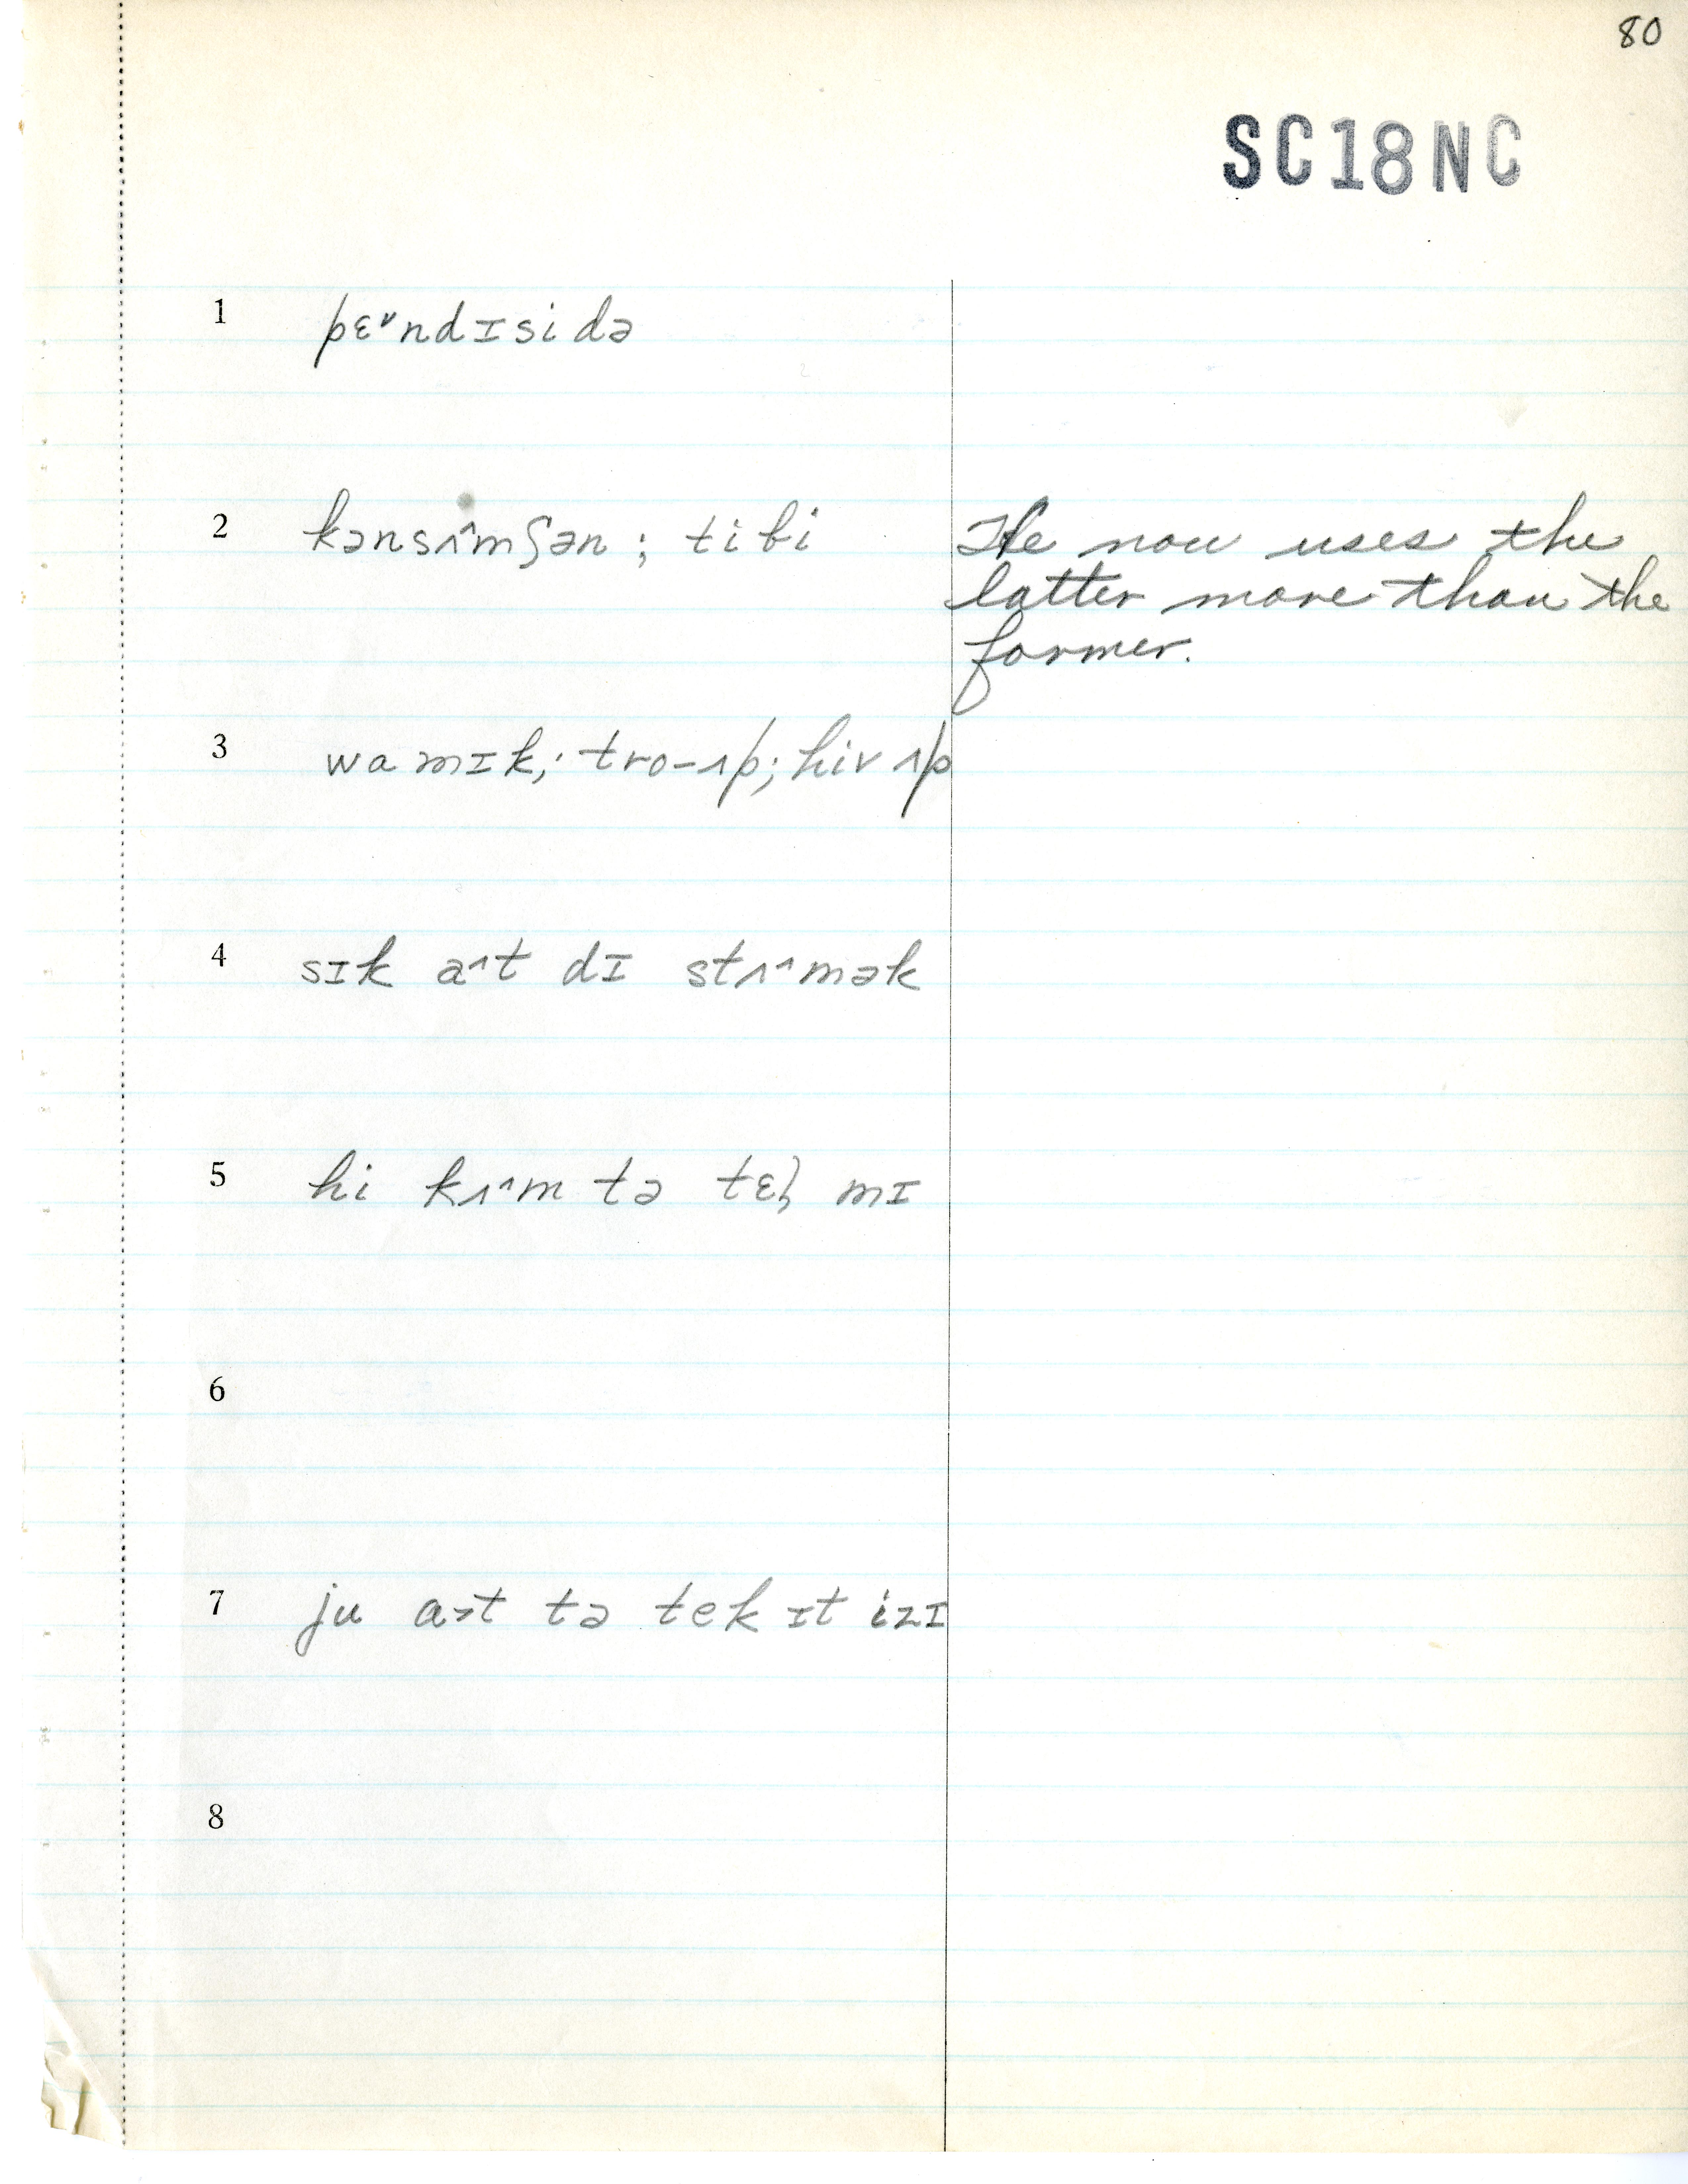 80
SC18NC
1 pɛ˅ndɪsidə
2 kənsʌ^mʃən; tibi He now uses the
latter more than the
former.
3 wamɪk; tro-ʌp; hiv ʌp
4 sɪk a^t dɪ stʌ^mək
5 hi kʌ^m tə tɛl mɪ
6
7 ju a>t tə tek ɪt izɪ
8